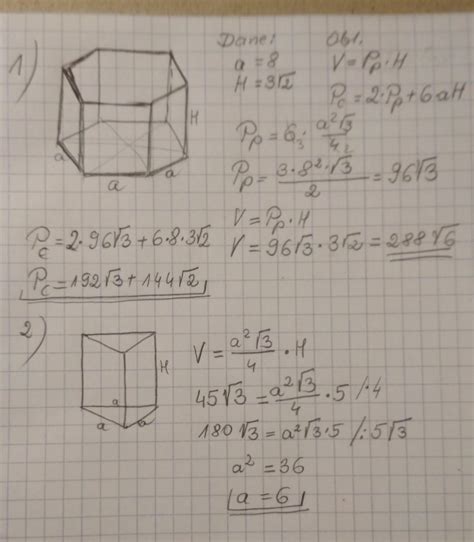 1)
Dane:
a = 8
H = 3√2
Obl.
V = Pp · H
Pc = 2·Pp + 6·aH
Pp = 6 · a²√3 / 4
3 2
Pp = 3·8²·√3 / 2 = 96√3
V = Pp · H
V = 96√3 · 3√2 = 288√6
Pc = 2·96√3 + 6·8·3√2
Pc = 192√3 + 144√2
H
a a a
2)
H
a
a a
V = a²√3 / 4 · H
45√3 = a²√3 / 4 · 5 /·4
180√3 = a²√3·5 /:5√3
a² = 36
a = 6